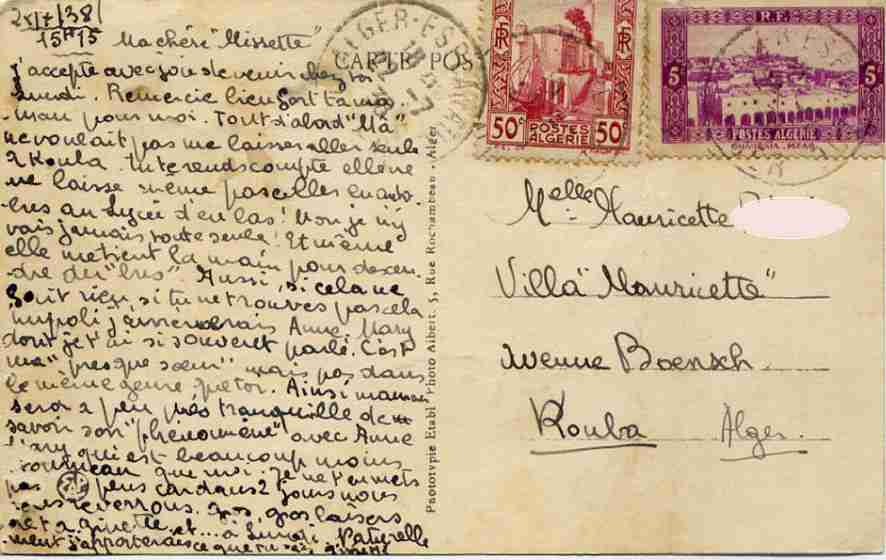 15h15
Ma chérie "Missette"
J'accepte avec joie de venir chez toi
lundi. Remercie bien fort ta ma-
man pour moi. Tout d'abord "Má"
ne voulait pas me laisser aller seule
à Kouba. Tu te rends compte elle ne
me laisse même pas
au lycée d'en bas! Non je n'y
vais jamais toute seule! Et même
elle me tient la main pour descen-
dre du "bus". Aussi, si cela ne
fait rien, si tu ne trouves pas cela
impoli j'emmènerais Anne-Mary
dont je t'ai si souvent parlé. C'est
ma "presque sœur" mais pas dans
le même genre que toi. Ainsi maman
sera à peu près tranquille de
savoir son "phénomène" avec Anne
Mary qui est beaucoup moins
que moi. Je ne t'en mets
pas plus car dans 2 jours nous
nous reverrons. gros, gros baisers
et à ginette et ... à Lundi. Naturelle-
ment j'apporterais ce que tu
CARTE POS
ALGER-ESPLANADE
50c POSTES ALGERIE 50c
R.F.
5c 5c
POSTES ALGERIE
GHARDAIA-MZAB
Phototypie Etabl Photo Albert, 5, Rue Rochambeau - Alger
Melle Mauricette
Villa "Mauricette"
Avenue Boensch
Kouba Alger.